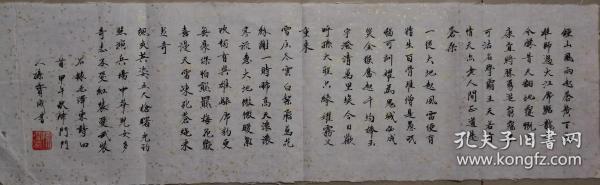 鍾山風雨起蒼黃百万
雄師過大江虎踞龍盤
今勝昔天翻地覆慨而
慷宜將剩勇追窮寇不
可沽名學霸王天若有
情天亦老人間正道是
滄桑
一從大地起風雷便有
精生白骨堆僧是愚氓
猶可訓妖為鬼蜮必成
災金猴奮起千鈞棒玉
宇澄清萬里埃今日歡
呼孫大聖只緣妖霧又
重來
雪壓冬雲白絮飛萬花
紛謝一時稀高天滾滾
寒流急大地微微暖氣
吹獨有英雄驅虎豹更
無豪傑怕熊羆梅花歡
喜漫天雪凍死蒼蠅未
足奇
颯爽英姿五尺槍曙光初
照演兵場中華兒女多
奇志不愛紅裝愛武裝
右錄毛澤東詩四
首甲午秋
孔夫子旧书网